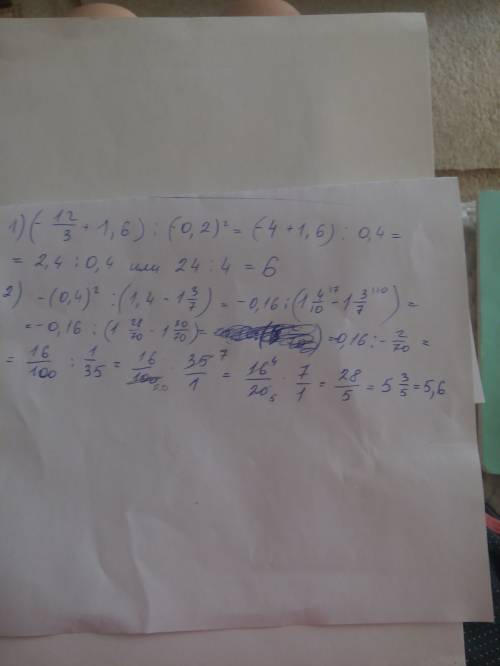 1) (-12/3 + 1,6) : (-0,2)² = (-4 + 1,6) : 0,4 =
= 2,4 : 0,4 или 24 : 4 = 6
2) -(0,4)² : (1,4 - 1 3/7) = -0,16 : (1 4/10 ¹⁷ - 1 3/7 ¹¹⁰) =
= -0,16 : (1 28/70 - 1 30/70) = -0,16 : - 2/70 =
= 16/100 : 1/35 = 16/100 20 · 35/1 ⁷ = 16⁴/20 5 · 7/1 = 28/5 = 5 3/5 = 5,6